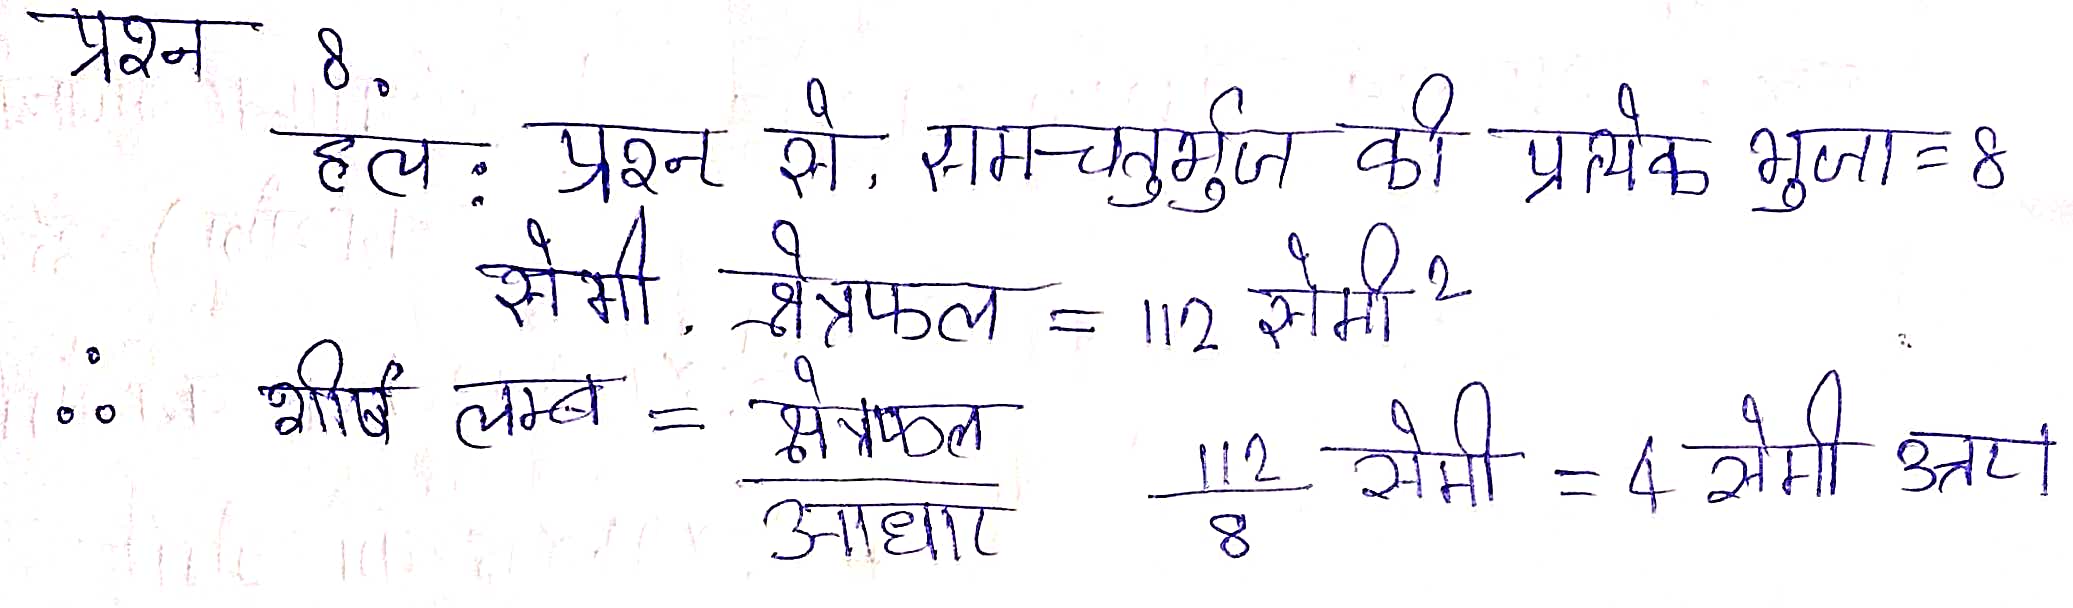 प्रश्न 8.
हल : प्रश्न से, समचतुर्भुज की प्रत्येक भुजा = 8
सेमी. क्षेत्रफल = 112 सेमी²
∴ शीर्ष लम्ब = क्षेत्रफल/आधार 112/8 सेमी = 4 सेमी उत्तर।